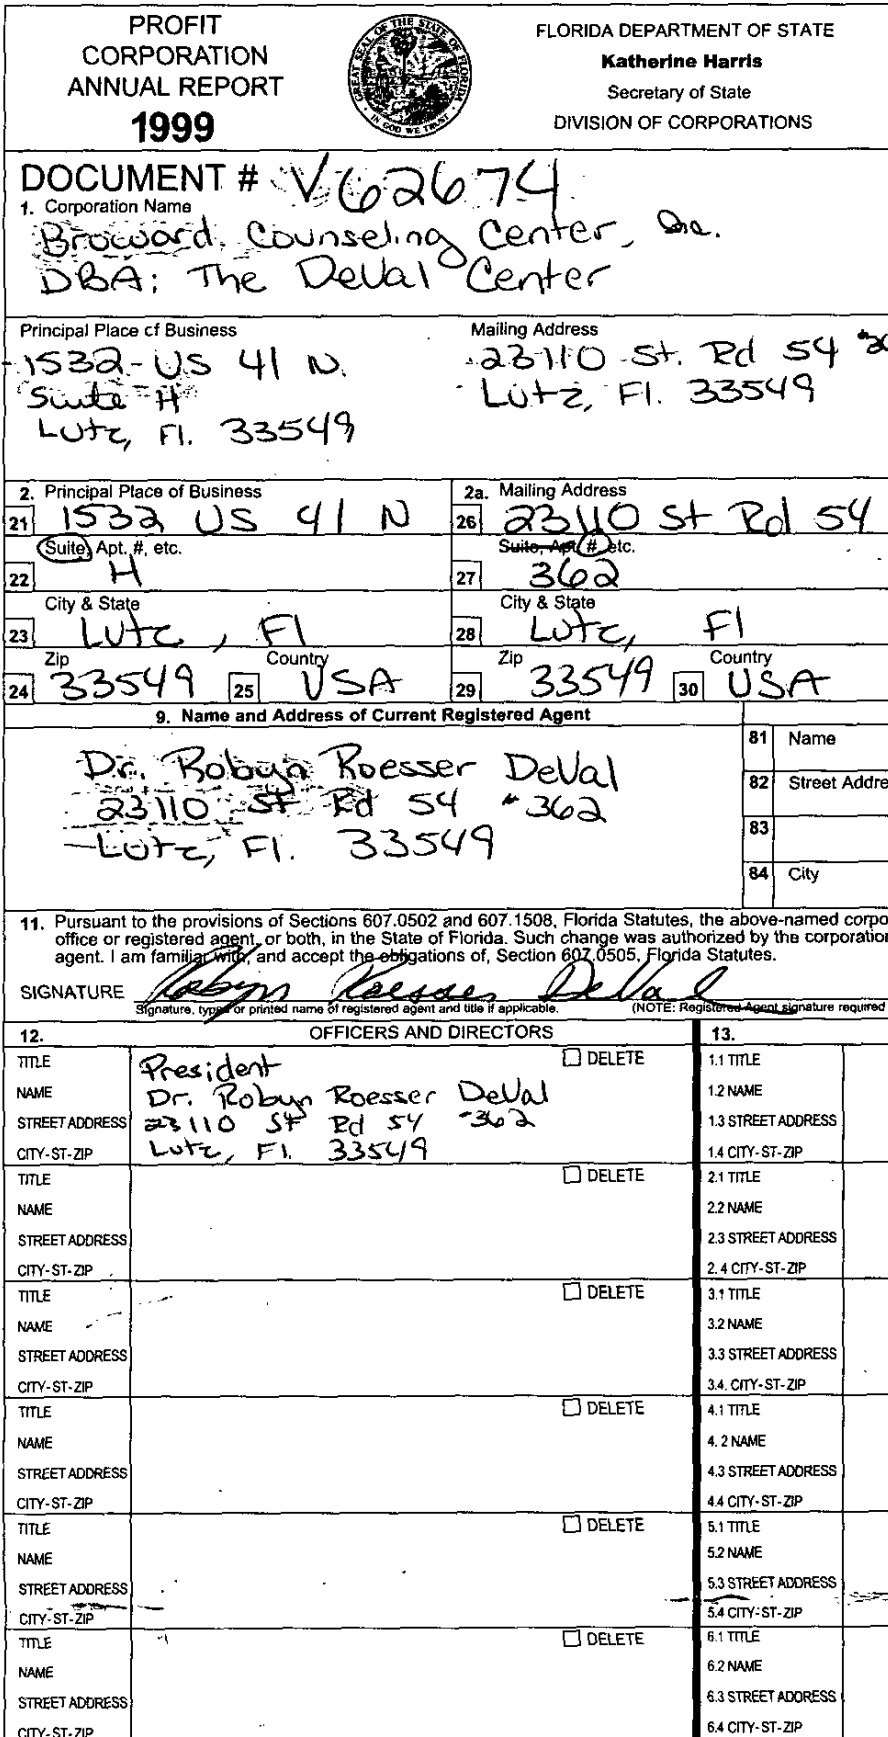 PROFIT
CORPORATION
ANNUAL REPORT
1999
GREAT SEAL OF THE STATE OF FLORIDA
IN GOD WE TRUST
FLORIDA DEPARTMENT OF STATE
Katherine Harris
Secretary of State
DIVISION OF CORPORATIONS
DOCUMENT # V62674
1. Corporation Name
Broward Counseling Center, Inc.
DBA: The DeVal Center
Principal Place of Business
1532 US 41 N.
Suite H
Lutz, Fl. 33549
Mailing Address
23110 St. Rd 54
Lutz, Fl. 33549
2. Principal Place of Business
21 1532 US 41 N
Suite, Apt. #, etc.
22 H
City & State
23 Lutz, Fl
Zip Country
24 33549 25 USA
2a. Mailing Address
26 23110 St Rd 54
Suite, Apt. #, etc.
27 362
City & State
28 Lutz, Fl
Zip Country
29 33549 30 USA
9. Name and Address of Current Registered Agent
Dr. Robyn Roesser DeVal
23110 St Rd 54 #362
Lutz, Fl. 33549
81 Name
82 Street Addre
83
84 City
11. Pursuant to the provisions of Sections 607.0502 and 607.1508, Florida Statutes, the above-named corpo
office or registered agent, or both, in the State of Florida. Such change was authorized by the corporation
agent. I am familiar with, and accept the obligations of, Section 607.0505, Florida Statutes.
SIGNATURE Robyn Roesser DeVal
Signature, typed or printed name of registered agent and title if applicable. (NOTE: Registered Agent signature required
12. OFFICERS AND DIRECTORS
TITLE President DELETE
NAME Dr. Robyn Roesser DeVal
STREET ADDRESS 23110 St Rd 54 #362
CITY-ST-ZIP Lutz, Fl. 33549
TITLE DELETE
NAME
STREET ADDRESS
CITY-ST-ZIP
TITLE DELETE
NAME
STREET ADDRESS
CITY-ST-ZIP
TITLE DELETE
NAME
STREET ADDRESS
CITY-ST-ZIP
TITLE DELETE
NAME
STREET ADDRESS
CITY-ST-ZIP
TITLE DELETE
NAME
STREET ADDRESS
CITY-ST-ZIP
13.
1.1 TITLE
1.2 NAME
1.3 STREET ADDRESS
1.4 CITY-ST-ZIP
2.1 TITLE
2.2 NAME
2.3 STREET ADDRESS
2.4 CITY-ST-ZIP
3.1 TITLE
3.2 NAME
3.3 STREET ADDRESS
3.4. CITY-ST-ZIP
4.1 TITLE
4.2 NAME
4.3 STREET ADDRESS
4.4 CITY-ST-ZIP
5.1 TITLE
5.2 NAME
5.3 STREET ADDRESS
5.4 CITY-ST-ZIP
6.1 TITLE
6.2 NAME
6.3 STREET ADDRESS
6.4 CITY-ST-ZIP